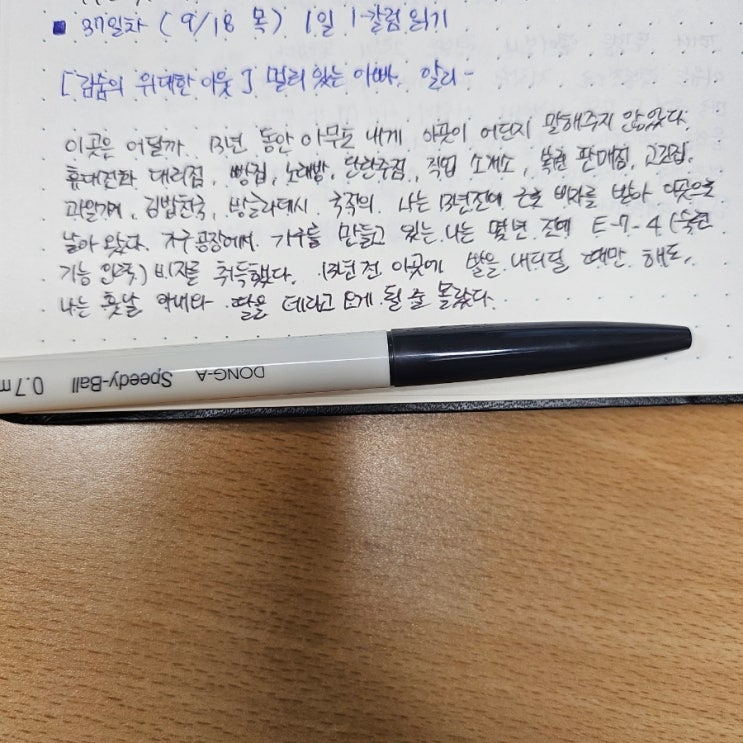 ■ 37일차 ( 9/18 목 ) 1일 1칼럼 읽기
[김숨의 위대한 이웃] 멀리 있는 아빠, 알리-
이곳은 어딜까. 13년 동안 아무도 내게 이곳이 어딘지 말해주지 않았다.
휴대전화 대리점, 빵집, 노래방, 단란주점, 직업 소개소, 복권 판매점, 고깃집,
과일가게, 김밥천국, 방글라데시 국적의 나는 13년전에 근로 비자를 받아 이곳으로
날아 왔다. 가구 공장에서 가구를 만들고 있는 나는 몇 년 전에 E-7-4 (숙련
기능 인력) 비자를 취득했다. 13년 전 이곳에 발을 내디딜 때만 해도,
나는 훗날 아내와 딸을 데리고 오게 될 줄 몰랐다.
DONG-A Speedy-Ball 0.7m